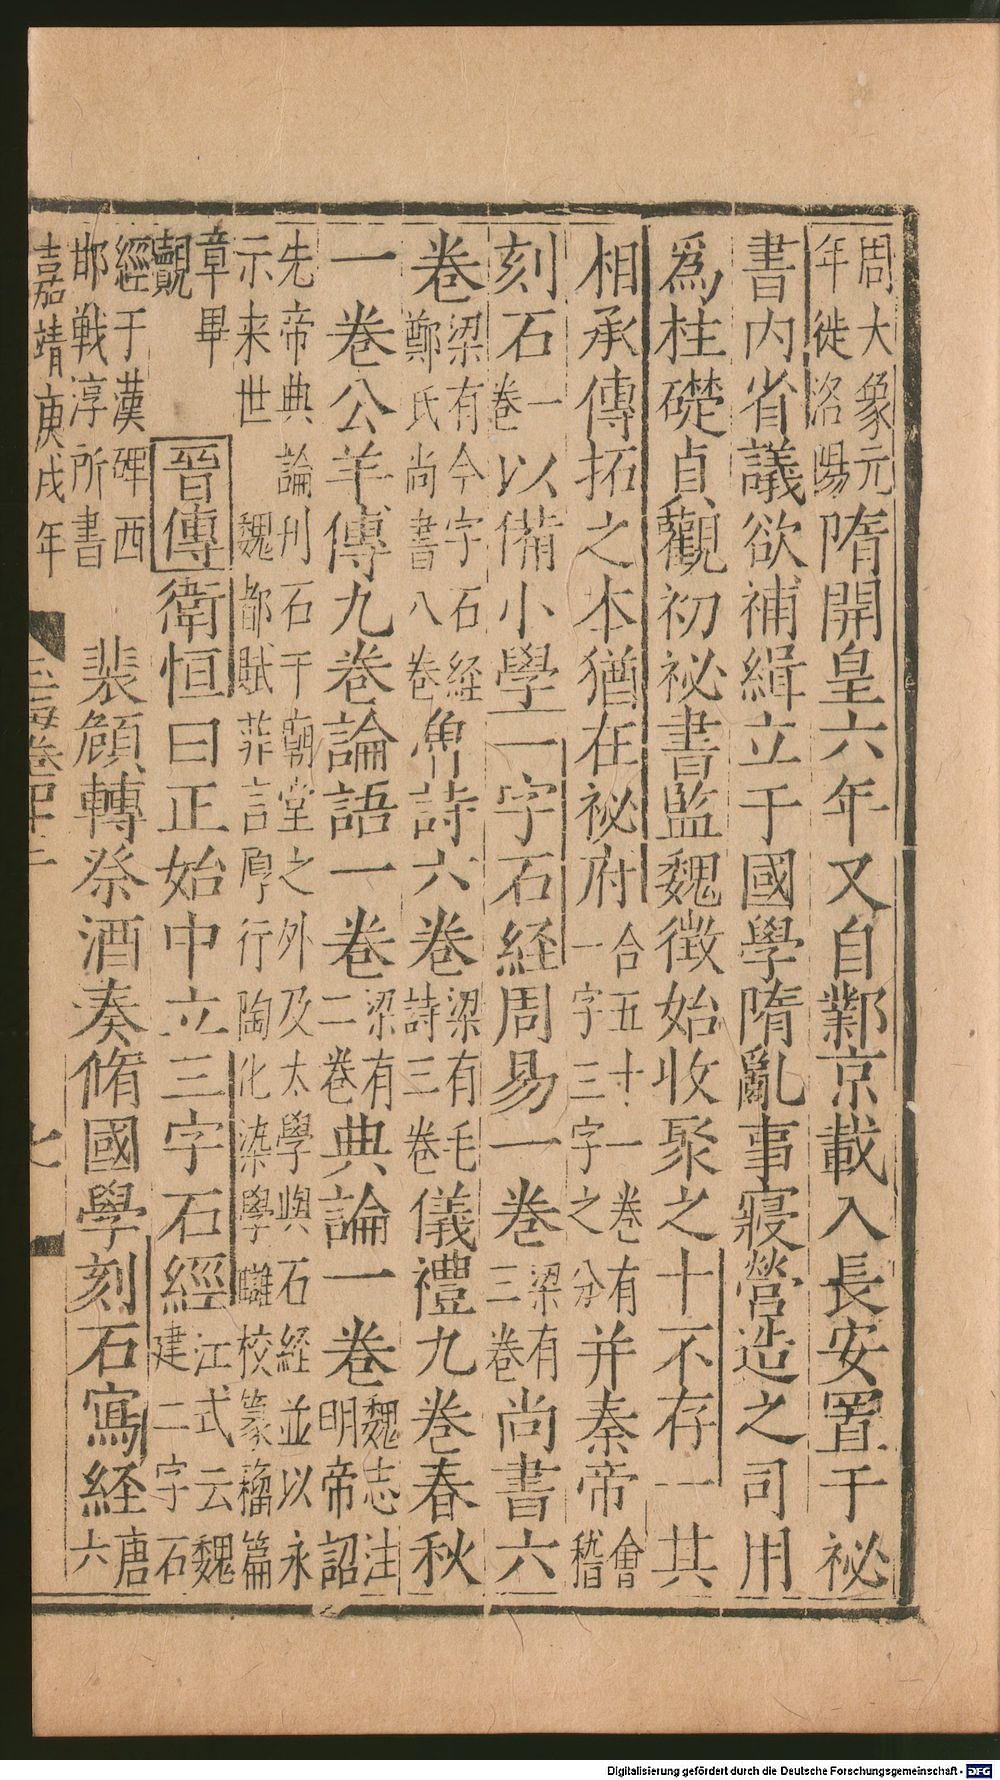 周大象元
年徙洛陽
隋開皇六年又自鄴京載入長安置于祕
書内省議欲補緝立于國學隋亂事寢營造之司用
爲柱礎貞觀初祕書監魏徴始收聚之十不存一其
相承傳拓之本猶在祕府
合五十一卷有
一字三字之分
并秦帝
會
稽
刻石
一
卷
以備小學一字石経周易一卷
梁有
三卷
尚書六
卷
梁有今字石経
鄭氏尚書八卷
魯詩六卷
梁有毛
詩三卷
儀禮九卷春秋
一卷公羊傳九卷論語一卷
梁有
二卷
典論一卷
魏志注
明帝詔
先帝典論刋石于廟堂之外及太學與石経並以永
示来世 魏都賦菲言厚行陶化染學讎校篆籀篇
章畢
覿
晉傳衛恒曰正始中立三字石經
江式云魏
建二字石
經于漢碑西
邯戦淳所書
裴頠轉祭酒奏脩國學刻石寫経
唐
六
嘉靖庚戌年
玉海卷四十
七
Digitalisierung gefördert durch die Deutsche Forschungsgemeinschaft - DFG